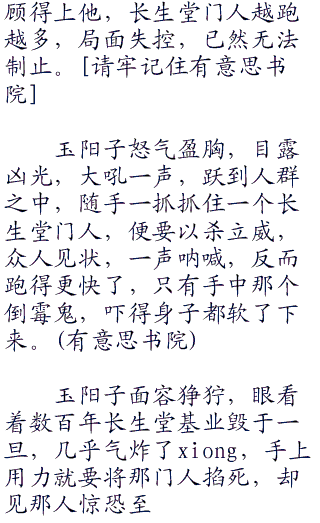 顾得上他，长生堂门人越跑
越多，局面失控，已然无法
制止。[请牢记住有意思书
院]
玉阳子怒气盈胸，目露
凶光，大吼一声，跃到人群
之中，随手一抓抓住一个长
生堂门人，便要以杀立威，
众人见状，一声呐喊，反而
跑得更快了，只有手中那个
倒霉鬼，吓得身子都软了下
来。(有意思书院)
玉阳子面容狰狞，眼看
着数百年长生堂基业毁于一
旦，几乎气炸了xiong，手上
用力就要将那门人掐死，却
见那人惊恐至